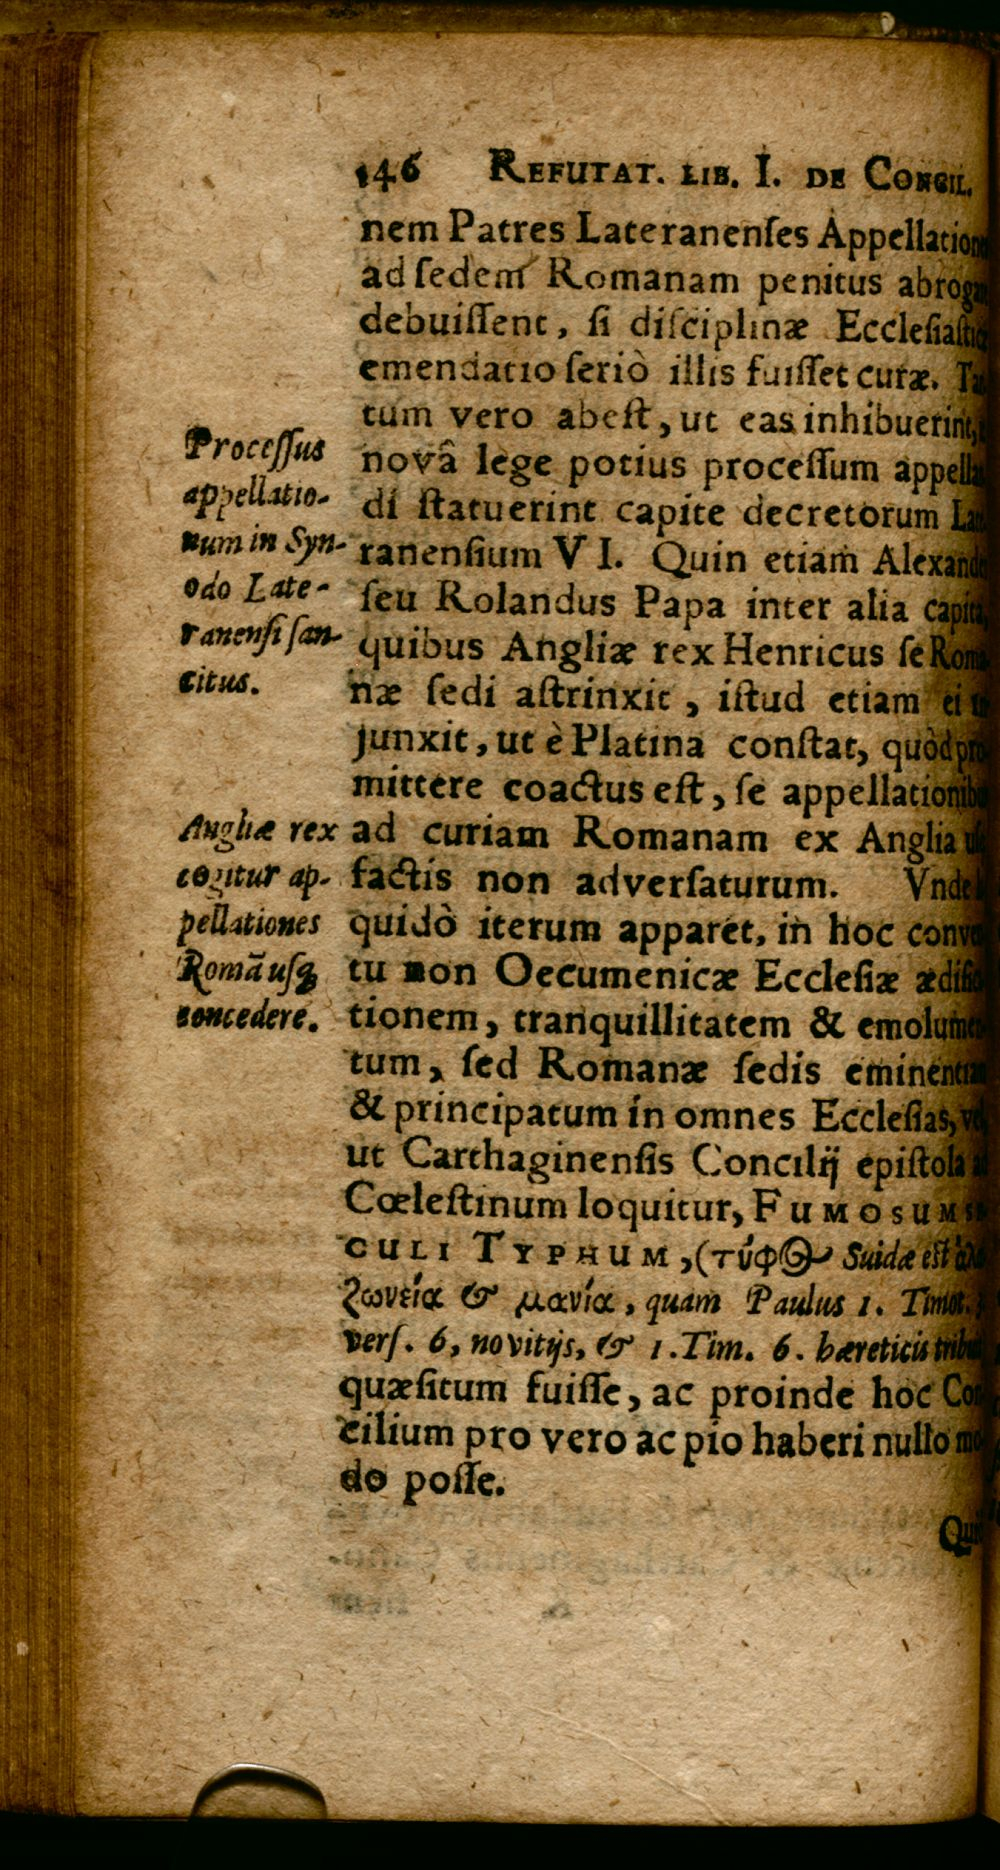 146 REFUTAT. LIB. I. DE CONCIL.
nem Patres Lateranenſes Appellatione
ad ſedem Romanam penitus abrogan
debuiſſent, ſi diſciplinæ Eccleſiaſticæ
emendatio ſeriò illis fuiſſet curæ. Tan
tum vero abeſt, ut eas inhibuerint,
novâ lege potius proceſſum appellan
di ſtatuerint capite decretorum Late
ranenſium VI. Quin etiam Alexander
ſeu Rolandus Papa inter alia capita,
quibus Angliæ rex Henricus ſe Roma
næ ſedi aſtrinxit, iſtud etiam ei in
junxit, ut è Platina conſtat, quòd pro
mittere coactus eſt, ſe appellationibus
ad curiam Romanam ex Anglia
factis non adverſaturum. Vnde
quidò iterum apparet, in hoc conven
tu non Oecumenicæ Eccleſiæ ædifica
tionem, tranquillitatem & emolumen
tum, ſed Romanæ ſedis eminentiam
& principatum in omnes Eccleſias, vel
ut Carthaginenſis Concilij epiſtola ad
Cœleſtinum loquitur, FUMOSUM SE
CULI TYPHUM, (τύφος Suidæ est ἀλα
ζωνεία & μανία, quam Paulus 1. Timot. 3
verſ. 6, novitijs, & 1. Tim. 6. hæreticis tribuit
quæſitum fuiſſe, ac proinde hoc Con
cilium pro vero ac pio haberi nullo mo
do poſſe.
Qui
Proceſſus
appellatio-
num in Syn-
odo Late-
ranenſi ſan-
citus.
Angliæ rex
cogitur ap-
pellationes
Romã uſq́
concedere.